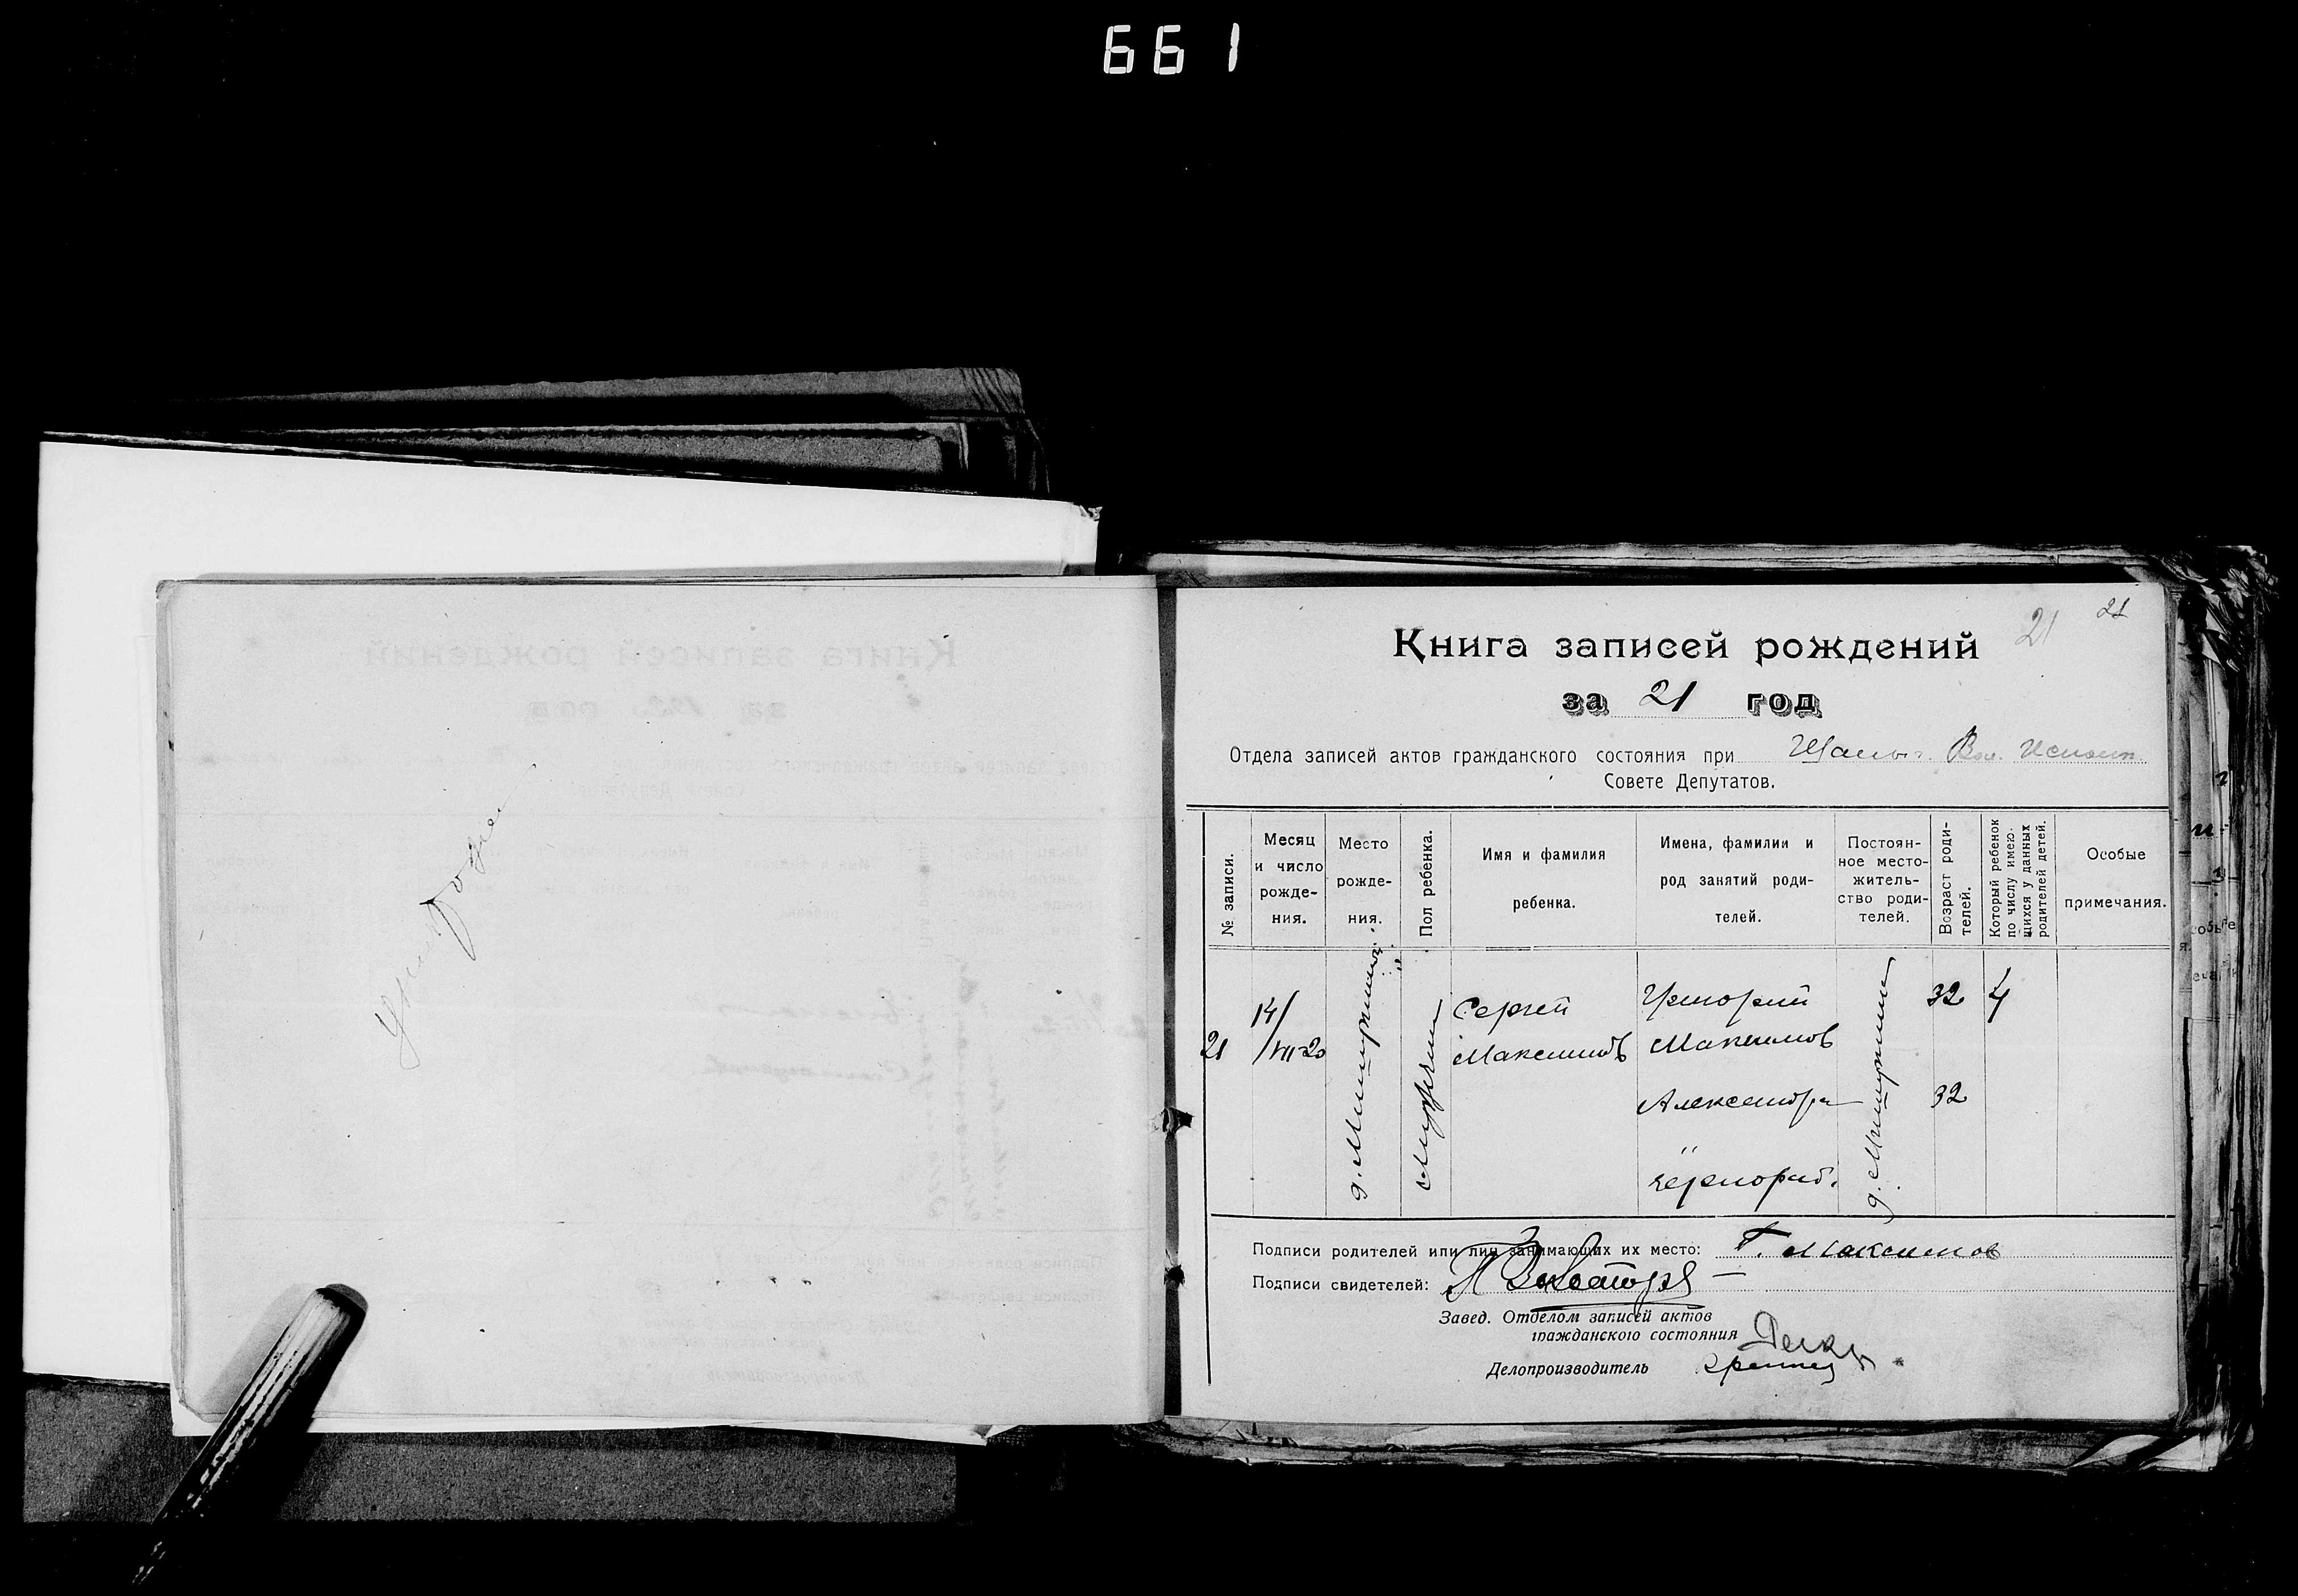 661
21 21
Книга записей рождений
за 21 год
Отдела записей актов гражданского состояния при Вол. Исполт.
Совете Депутатов.
№ записи.
Месяц и число рожде-ния.
Место рожде-ния.
Пол ребенка.
Имя и фамилия ребенка.
Имена, фамилии и род занятий роди-телей.
Постоян-ное место-житель-ство роди-телей.
Возраст роди-телей.
Который ребенок по числу имею-щихся у данных родителей детей.
Особые примечания.
21
14/VII-20
Мужчин
Сергей
Максимов
Григорий
Максимов
Александра
чернораб.
32
32
4
Подписи родителей или лиц занимающих их место: Г. Максимов
Подписи свидетелей:
Завед. Отделом записей актов
гражданского состояния
Делопроизводитель